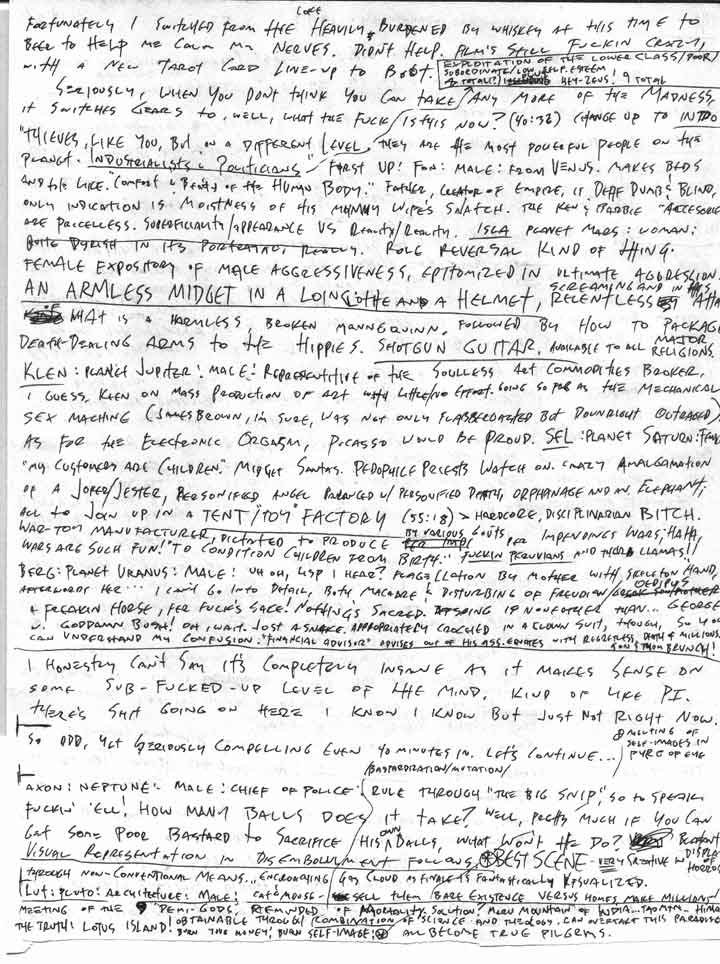 LATE
FORTUNATELY I SWITCHED FROM THE HEAVILY BURDENED BY WHISKEY AT THIS TIME TO
BEER TO HELP ME CALM MY NERVES. DIDN'T HELP. FILM'S STILL FUCKIN CRAZY,
WITH A NEW TAROT CARD LINE-UP TO BOOT. EXPLOITATION OF THE LOWER CLASS/POOR/
SUBORDINATE/LOW SELF ESTEEM
TOTAL!? HEY-ZEUS! 9 TOTAL
SERIOUSLY, WHEN YOU DON'T THINK YOU CAN TAKE ANY MORE OF THE MADNESS,
IT SWITCHES GEARS TO, WELL, WHAT THE FUCK IS THIS NOW? (40:36) CHANGE UP TO INTRO
"THIEVES, LIKE YOU, BUT ON A DIFFERENT LEVEL, THEY ARE THE MOST POWERFUL PEOPLE ON THE
PLANET. INDUSTRIALISTS & POLITICIANS" FIRST UP! FON: MALE: FROM VENUS. MAKES BEDS
AND THE LIKE. "COMFORT & BEAUTY OF THE HUMAN BODY." FATHER, CREATOR OF EMPIRE, IS DEAF DUMB & BLIND,
ONLY INDICATION IS MOISTNESS OF HIS MUMMY WIFE'S SNATCH. THE KEN & BARBIE "ACCESSORIES
ARE PRICELESS. SUPERFICIALITY/APPEARANCE VS BEAUTY/REALITY. ISLA PLANET MARS: WOMAN:
QUITE DYKISH IN ITS PORTRAYAL, REALLY. ROLE REVERSAL KIND OF THING.
FEMALE EXPOSITORY OF MALE AGGRESSIVENESS, EPITOMIZED IN ULTIMATE AGGRESSION.
AN ARMLESS MIDGET IN A LOINCLOTHE AND A HELMET, SCREAMING AND IN HIS RELENTLESS
WHAT IS A HARMLESS, BROKEN MANNQUINN, FOLLOWED BY HOW TO PACKAGE
DEATH-DEALING ARMS TO THE HIPPIES. SHOTGUN GUITAR, AVAILABLE TO ALL MAJOR RELIGIONS.
KLEN: PLANET JUPITER! MALE! REPRESENTITIVE OF THE SOULLESS ART COMMODITIES BROKER,
I GUESS, KLEN ON MASS PRODUCTION OF ART WITH LITTLE/NO EFFORT. GOING SO FAR AS THE MECHANICAL
SEX MACHINE (JAMES BROWN, I'M SURE, WAS NOT ONLY FLABBERGASTED BUT DOWNRIGHT OUTRAGED)
AS FOR THE ELECTRONIC ORGASM, PICASSO WOULD BE PROUD. SEL: PLANET SATURN:
"MY CUSTOMERS ARE CHILDREN." MIDGET SANTAS. PEDOPHILE PRIESTS WATCH ON. CRAZY AMALGAMATION
OF A JOKER/JESTER, PERSONIFIED ANGEL PARANGED W/ PERSONIFIED DEATH, ORPHANAGE AND AN ELEPHANT;
ALL TO JOIN UP IN A TENT/"TOY" FACTORY (55:18) > HARDCORE, DISCIPLINARIAN BITCH.
WAR-TOY MANUFACTURER, DICTATED TO PRODUCE BY VARIOUS GOV'TS PER IMPENDINGS WARS; HAHA,
WARS ARE SUCH FUN! "TO CONDITION CHILDREN FROM BIRTH." FUCKIN PERUVIANS AND THEIR LLAMAS!!
BERG: PLANET URANUS: MALE! UH OH, LISP I HEAR? FLAGELLATION BY MOTHER WITH SKELETON HAND,
AFTERWORDS HER... I CAN'T GO INTO DETAIL, BOTH MACABRE & DISTURBING OF FREUDIAN OEDIPUS
& FREAKIN HORSE, FER FUCK'S SAKE! NOTHING'S SACRED. IS NONEOTHER THAN... GEORGE
W. GODDAMN BUSH! OH, WAIT. JUST A SNAKE. APPROPRIATELY CROCHED IN A CLOWN SUIT, THOUGH, SO YOU
CAN UNDERSTAND MY CONFUSION. "FINANCIAL ADVISOR" ADVISES OUT OF HIS ASS. EQUATES WITH REGRETS, DEATH 4 MILLIONS,
BRUNCH!
I HONESTLY CAN'T SAY IT'S COMPLETELY INSANE AS IT MAKES SENSE ON
SOME SUB-FUCKED-UP LEVEL OF THE MIND. KIND OF LIKE PI.
THERE'S SHIT GOING ON HERE I KNOW I KNOW BUT JUST NOT RIGHT NOW.
SO ODD, YET SERIOUSLY COMPELLING EVEN 40 MINUTES IN. LET'S CONTINUE...
MELTING OF
SELF-IMAGES IN
PYRE OF EYE
/BASTARDIZATION/MUTATION/
AXON: NEPTUNE: MALE: CHIEF OF POLICE: RULE THROUGH "THE BIG SNIP," SO TO SPEAK
FUCKIN' 'ELL! HOW MANY BALLS DOES IT TAKE? WELL, PRETTY MUCH IF YOU CAN
GET SOME POOR BASTARD TO SACRIFICE HIS OWN BALLS, WHAT WON'T HE DO? BLATANT DISPLAY
VISUAL REPRESENTATION IN DISEMBOWLMENT FOLLOWS, BEST SCENE - VERY CREATIVE IN OF HORROR
THROUGH NON-CONVENTIONAL MEANS... ENCROACHING GAS CLOUD AS FINALE IS FANTASTICALLY VISUALIZED.
LUT: PLUTO: ARCHITECTURE: MALE: CAT & MOUSE - SELL THEM BARE EXISTENCE VERSUS HOMES MAKE MILLIONS/
MEETING OF THE 9 "DEMI-GODS." REMINDED OF MORTALITY. SOLUTION? MERU MOUNTAIN OF INDIA...
THE TRUTH! LOTUS ISLAND! OBTAINABLE THROUGH COMBINATION OF SCIENCE AND THEOLOGY. CAN OVERTAKE THIS PARADISE
BURN THE MONEY, BURN SELF-IMAGE; ALL BECOME TRUE PILGRIMS.